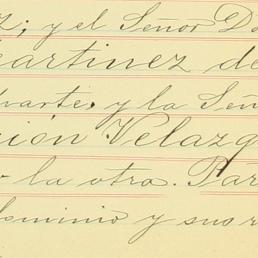 z; y el Señor Do
artinez de
uarte, y la Señ
ción Velazq
la otra. Par
dominio y sus r